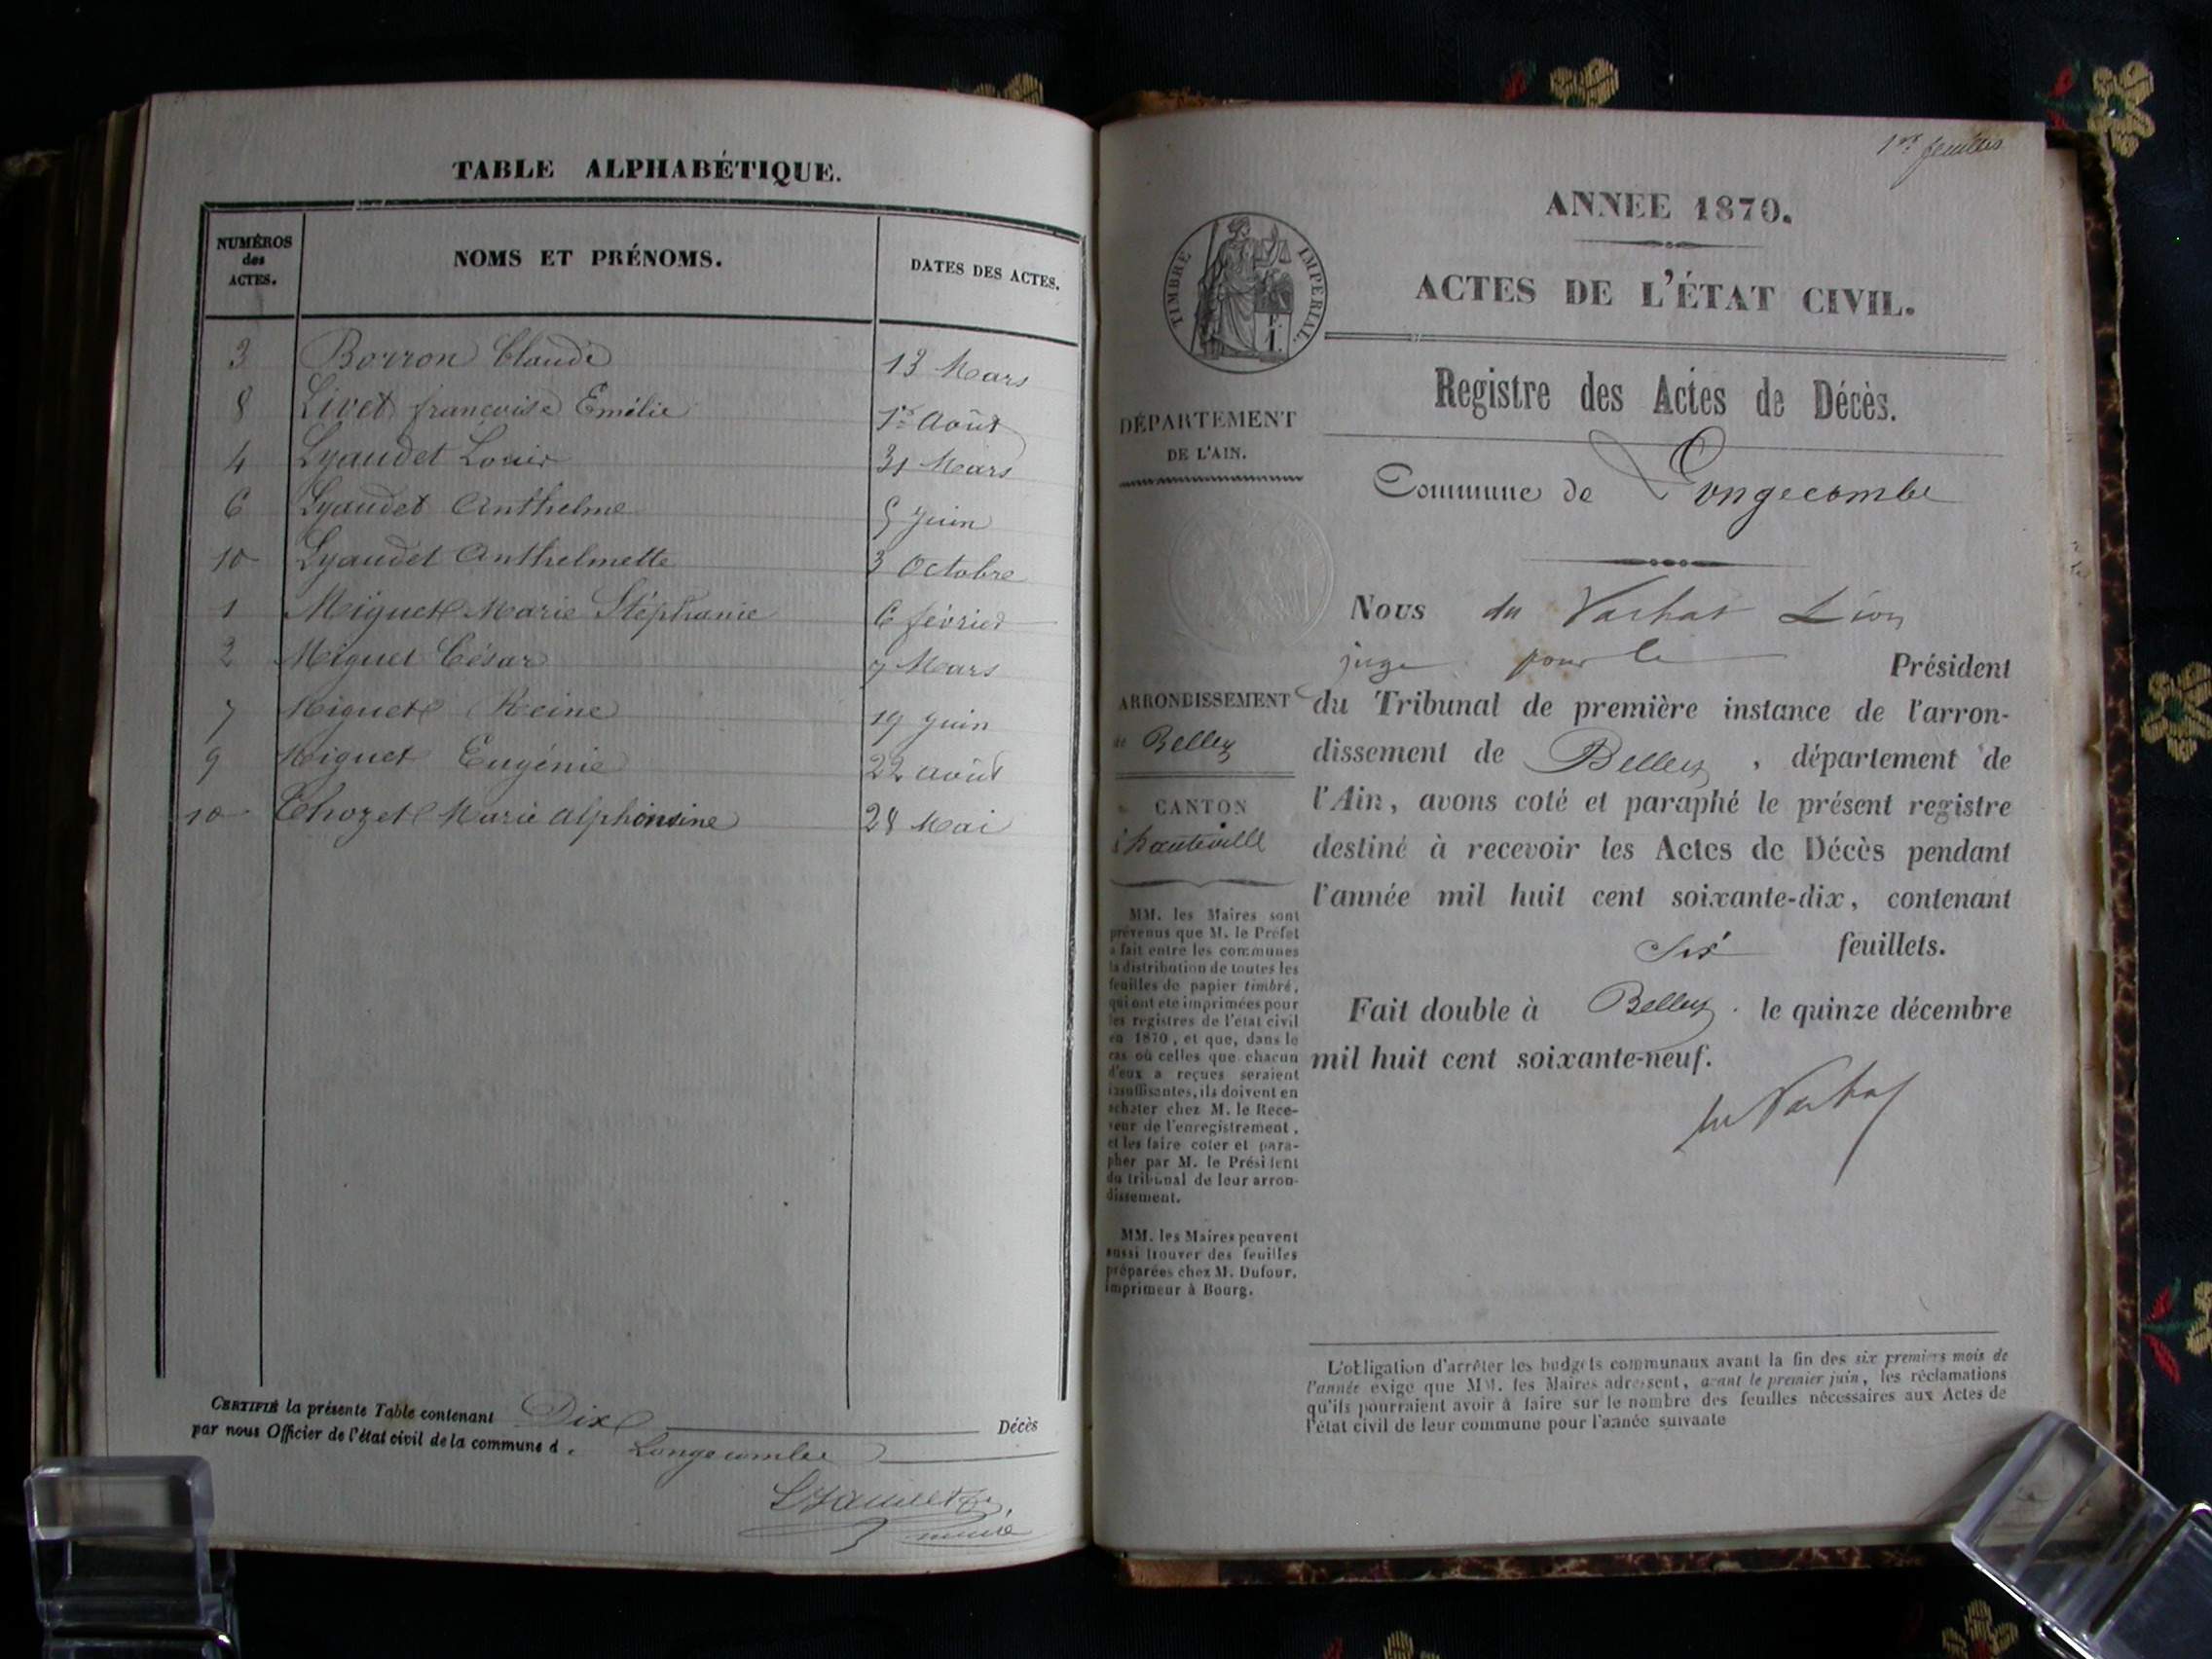 TABLE ALPHABÉTIQUE.
NUMÉROS des ACTES.
NOMS ET PRÉNOMS.
DATES DES ACTES.
3 Borron Claude 13 Mars
8 Livet françoise Emélie 1er Août
4 Lyaudet Louis 31 Mars
6 Lyaudet Anthelme 5 Juin
10 Lyaudet Anthelmette 3 Octobre
1 Miguet Marie Stéphanie 6 février
2 Miguet César 7 Mars
7 Miguet Reine 19 Juin
9 Miguet Eugénie 22 août
10 Chozet Marie Alphonsine 28 Mai
CERTIFIÉ la présente Table contenant Dix Décès
par nous Officier de l'état civil de la commune d. Longecombe
Lyaudet
1er feuillet
ANNÉE 1870.
TIMBRE IMPERIAL.
1 F.
ACTES DE L'ÉTAT CIVIL.
Registre des Actes de Décès.
DÉPARTEMENT
DE L'AIN.
Commune de Longecombe
Nous du Vachat Léon
juge pour le Président
ARRONDISSEMENT
de Belley
du Tribunal de première instance de l'arron-
dissement de Belley, département de
l'Ain, avons coté et paraphé le présent registre
destiné à recevoir les Actes de Décès pendant
l'année mil huit cent soixante-dix, contenant
six feuillets.
Fait double à Belley. le quinze décembre
mil huit cent soixante-neuf.
du Vachat
CANTON
d'hauteville
MM. les Maires sont
prévenus que M. le Préfet
a fait entre les communes
la distribution de toutes les
feuilles de papier timbré,
qui ont été imprimées pour
les registres de l'état civil
en 1870, et que, dans le
cas où celles que chacun
d'eux a reçues seraient
insuffisantes, ils doivent en
acheter chez M. le Rece-
veur de l'enregistrement,
et les faire coter et para-
pher par M. le Président
du tribunal de leur arron-
dissement.
MM. les Maires peuvent
aussi trouver des feuilles
préparées chez M. Dufour,
imprimeur à Bourg.
L'obligation d'arrêter les budgets communaux avant la fin des six premiers mois de
l'année exige que MM. les Maires adressent, avant le premier juin, les réclamations
qu'ils pourraient avoir à faire sur le nombre des feuilles nécessaires aux Actes de
l'état civil de leur commune pour l'année suivante